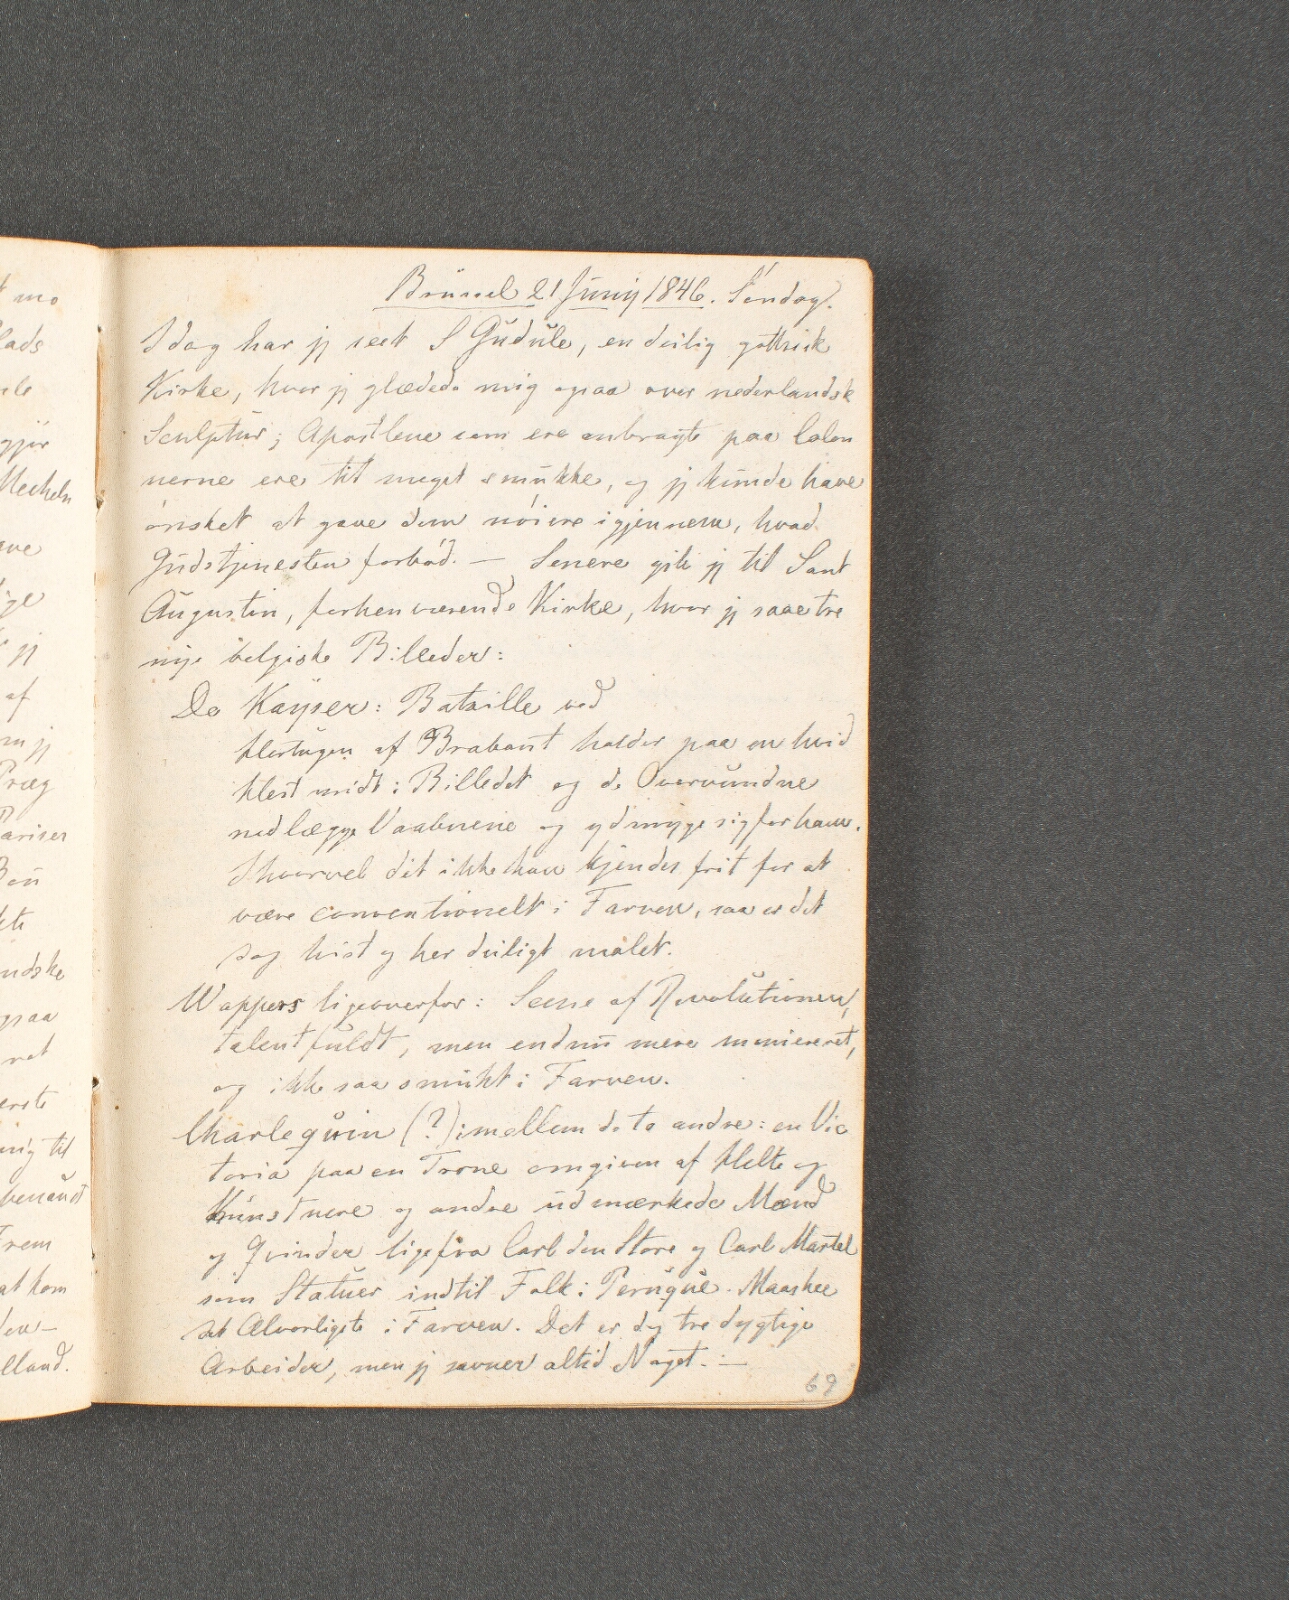 t mo
lads
ele
gjör
Mecheln
ave
ige
jj
af
m jj
Præg
ariser
Bou
kte
ndske
gsaa
net
erste
mig til
benaust
Frem
at kom
den —
lland.
Brüssel 21 Junij 1846. Söndag.
I dag har jj seet S Gudule, en deilig gothisk
Kirke, hvor jj glædede mig ogsaa over nederlandsk
Sculptur; Apostlene som ere anbragte paa Colon
nerne ere til meget smukke, og jj kunde have
önsket at gaae dem nöiere igjennem, hvad
Gudstjenesten forböd. — Senere gik jj til Sant
Augustin, forhenværende Kirke, hvor jj saae tre
nye belgiske Billeder:
De Kayser: Bataille ved
Hertugen af Brabant holder paa en hvid
Hest midt i Billedet og de Overvundne
nedlægge Vaabnene og ydmyge sig for ham.
Ihvorvel det ikke kan kjendes frit for at
være conventionelt i Farven, saa er det
dog hist og her deiligt malet.
Wappers ligeoverfor: Scene af Revolutionen,
talentfuldt, men endnu mere manieret,
og ikke saa smukt i Farven.
Charlequin (?) imellem de to andre: en Vic
toria paa en Trone omgiven af Helte og
Kunstnere og andre udmærkede Mænd
og Qvinder ligefra Carl den Store og Carl Martel
som Statuer indtil Folk i Peruque. Maaskee
det Alvorligste i Farven. Det er dog tre dygtige
Arbeider, men jj savner altid Noget. —
69